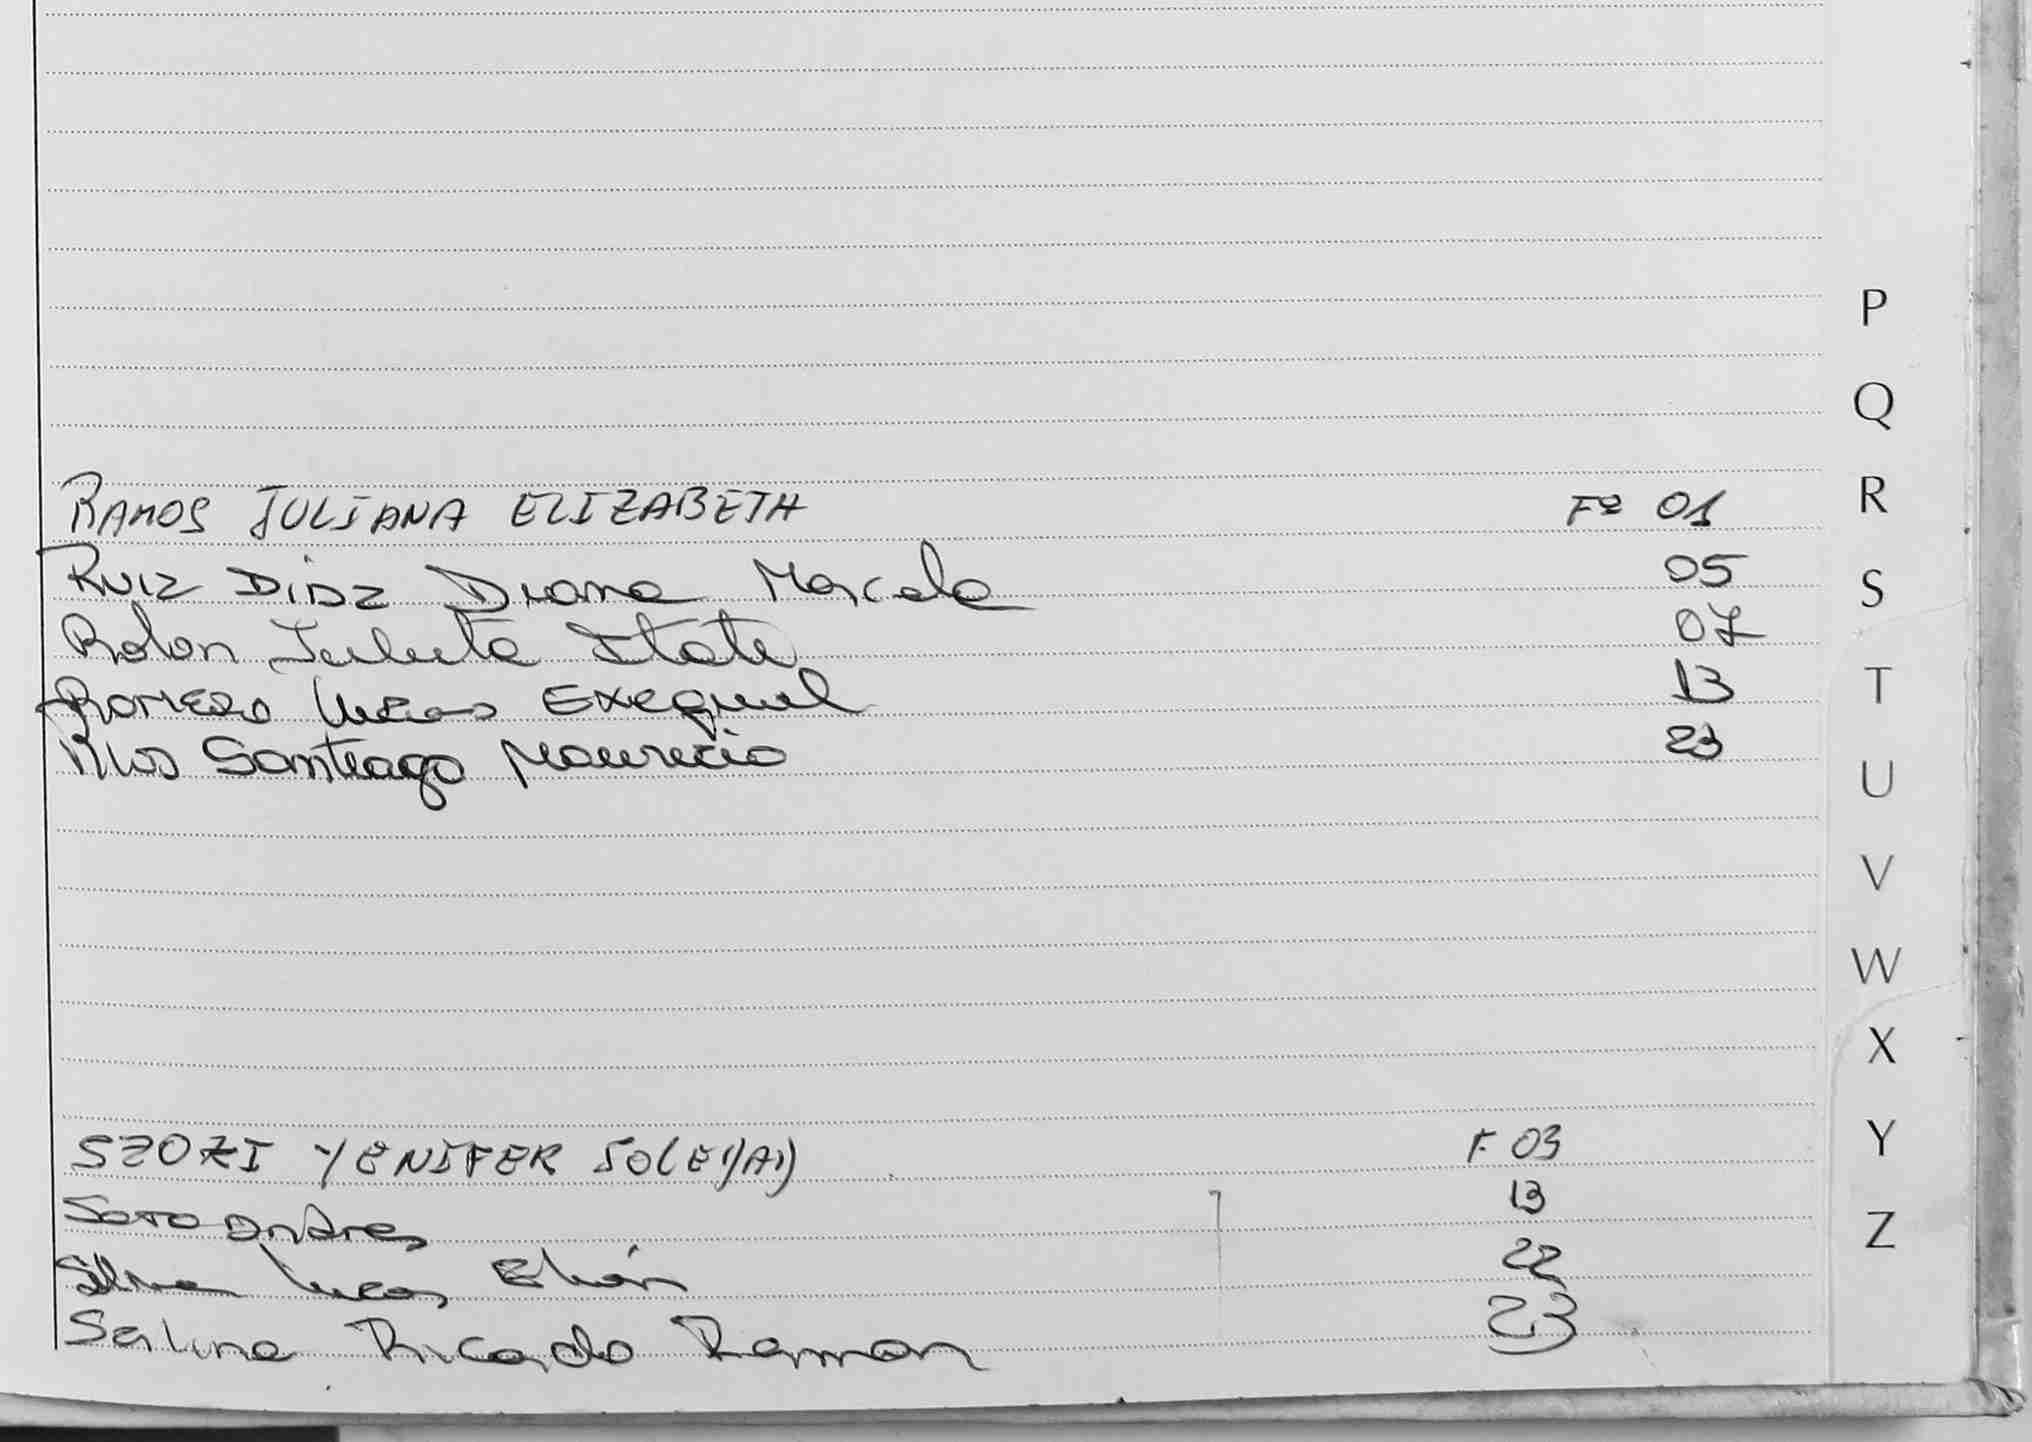 P
Q
RAMOS JULIANA ELIZABETH Fº 01 R
RUIZ DIAZ Diana Marcela 05 S
Rolon Julieta Itati 07
ROMERO Lucas Exequiel 13 T
Rios Santiago Mauricio 23 U
V
W
X
SZOZI YENIFER SOLEDAD F. 03 Y
Soto Andres 13 Z
Silva Lucas Elián 22
Salina Ricardo Ramon 23